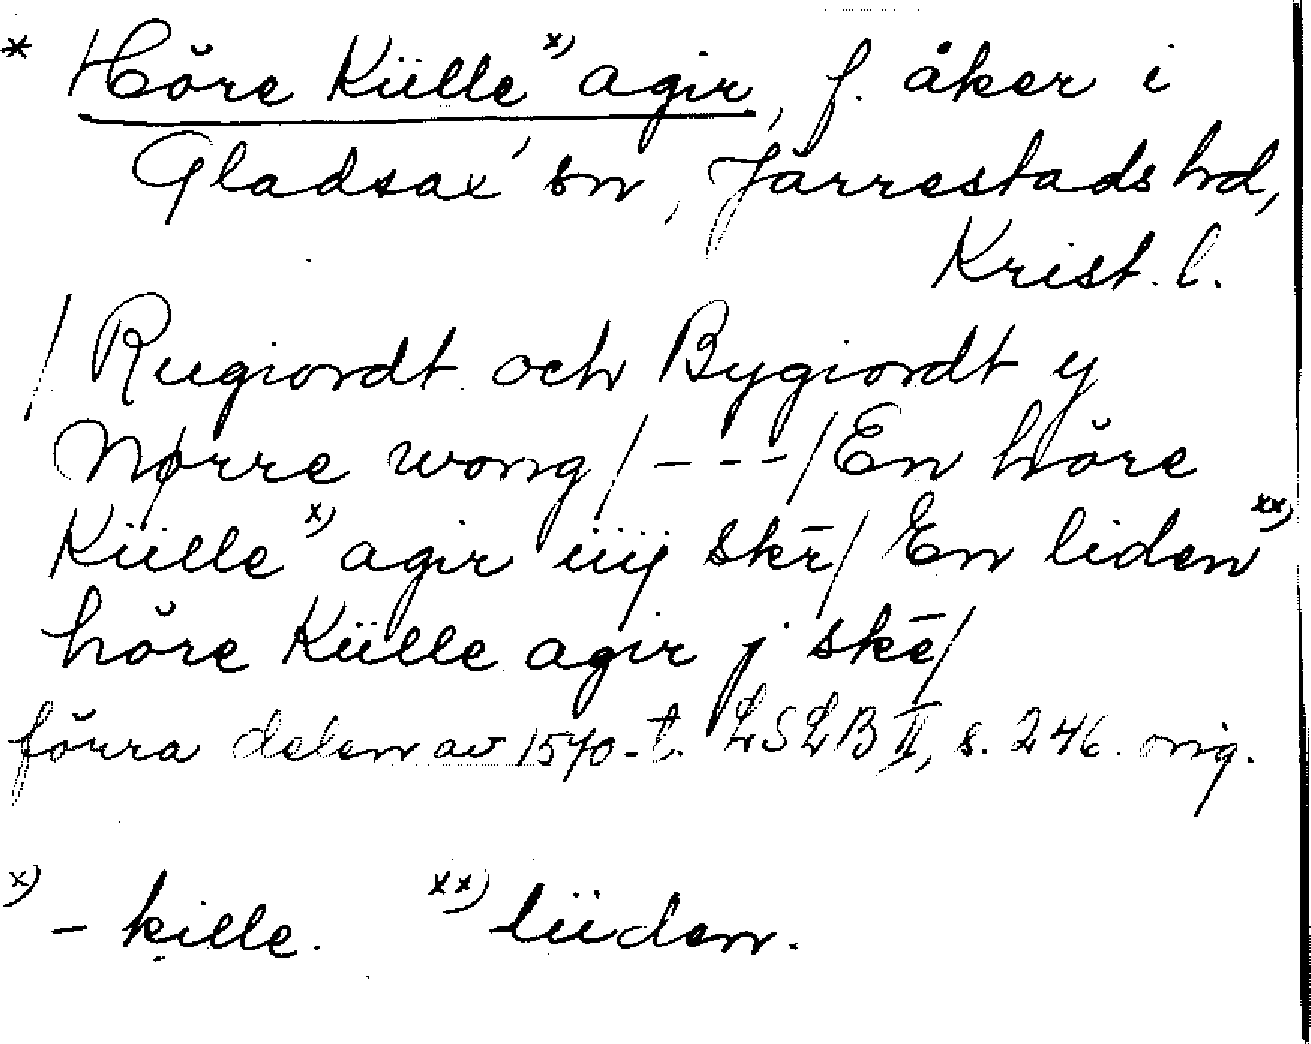 * Hŏre Kiille x) agir, f. åker i
Gladsax' sn, Järrestads hd,
Krist. l.
/ Rugiordt och Bygiordt y
Nørre wong / - - - / En hŏre
Kiille x) agir iiij skē / En liden xx)
hŏre Kiille agir j skē /
förra delen av 1570-t. LSLB II, s. 246. orig.
x) - kille. xx) liiden.